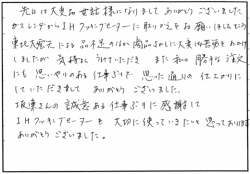 先日は大変お世話様になりまして ありがとうございました
ガスレンジからIHクッキングヒーターに取りかえをお願いしましたら
東北大震災による品不足の為に商品さがしに大変な苦労をおかけ
しましたが 気持よくしていただき また私の勝手な注文
にも思いやりのある仕事ぶりで 思った通りの仕上がりに
していただきまして ありがとうございました。
坂東さんの誠意ある仕事ぶりに感謝して
IHクッキングヒーターを大切に使っていきたいと思っております
ありがとうございました。